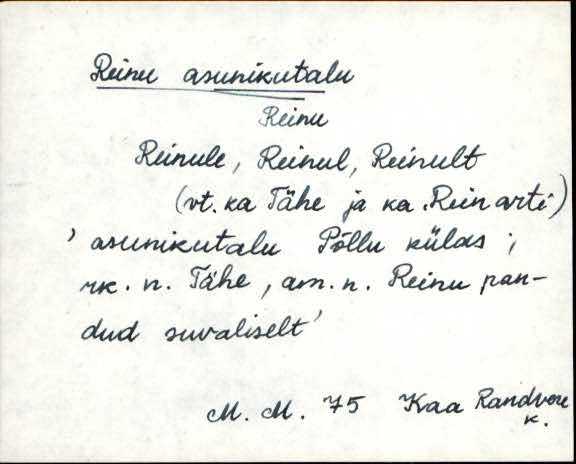 Reinu asunikutalu
Reinu
Reinule, Reinul, Reinult
(vt. ka Tähe ja ka Reinarti)
' asunikutalu Põllu külas ;
rk. n. Tähe, am. n. Reinu pan-
dud suvaliselt'
M. M. 75 Kaa Randvere
k.